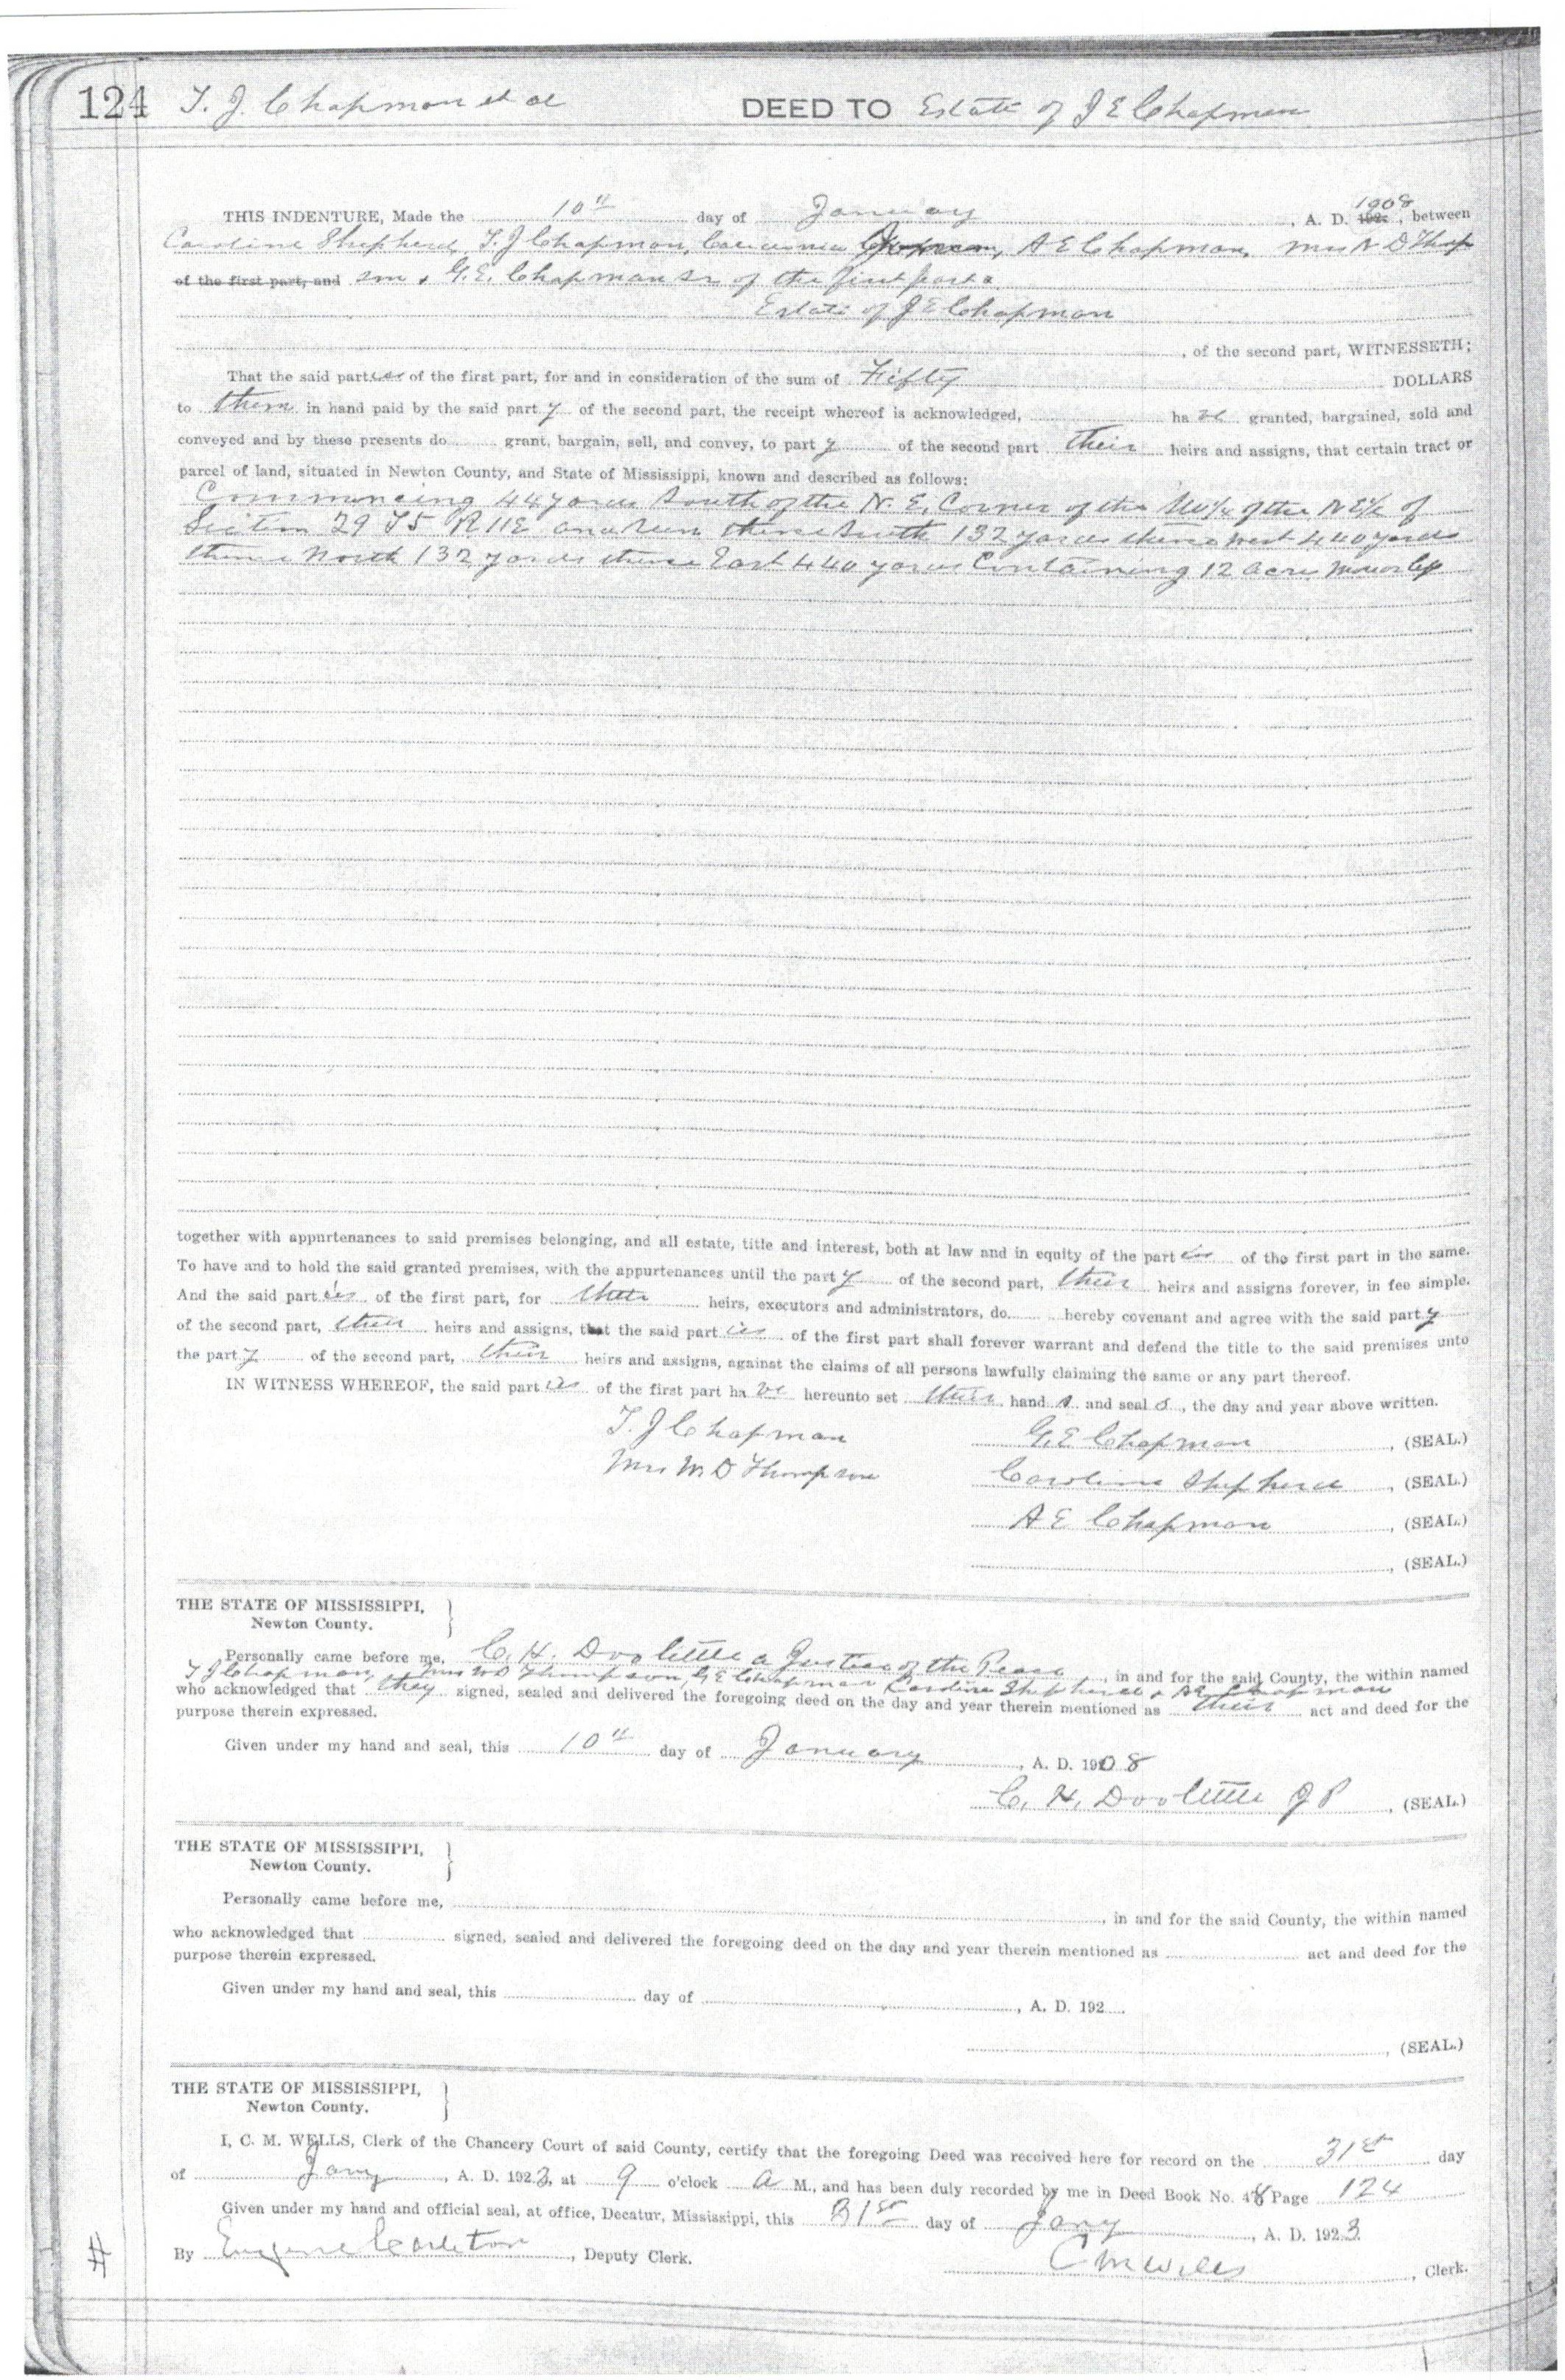 124 T. J. Chapman et al DEED TO Estate of J E Chapman
THIS INDENTURE, Made the 10th day of January, A. D. 1908, between
Caroline Shepherd, T. J Chapman, A E Chapman, Mrs D Thomp
of the first part, and son & G. E. Chapman Sr of the first part &
Estate of J E Chapman
, of the second part, WITNESSETH;
That the said parties of the first part, for and in consideration of the sum of Fifty DOLLARS
to them in hand paid by the said part y of the second part, the receipt whereof is acknowledged, ha ve granted, bargained, sold and
conveyed and by these presents do grant, bargain, sell, and convey, to part y of the second part their heirs and assigns, that certain tract or
parcel of land, situated in Newton County, and State of Mississippi, known and described as follows:
Commencing 44 yards South of the N. E. Corner of the of the N E 1/4 of
Section 29 T5 R 11E and run thence South 132 yards thence west 440 yards
thence North 132 yards thence East 440 yards Containing 12 acres more or less
together with appurtenances to said premises belonging, and all estate, title and interest, both at law and in equity of the part ies of the first part in the same.
To have and to hold the said granted premises, with the appurtenances until the part y of the second part, their heirs and assigns forever, in fee simple.
And the said part ies of the first part, for their heirs, executors and administrators, do hereby covenant and agree with the said party
of the second part, their heirs and assigns, that the said part ies of the first part shall forever warrant and defend the title to the said premises unto
the part y of the second part, their heirs and assigns, against the claims of all persons lawfully claiming the same or any part thereof.
IN WITNESS WHEREOF, the said part ies of the first part ha ve hereunto set their hand s and seal s, the day and year above written.
T. J Chapman G. E Chapman, (SEAL.)
Mrs M D Thompson Caroline Shepherd, (SEAL.)
A E Chapman, (SEAL.)
, (SEAL.)
THE STATE OF MISSISSIPPI,
Newton County.
Personally came before me, C. H. Doolittle a Justice of the Peace, in and for the said County, the within named
T J Chapman, Mrs M D Thompson, G E Chapman Caroline Shepherd & A E Chapman
who acknowledged that they signed, sealed and delivered the foregoing deed on the day and year therein mentioned as their act and deed for the
purpose therein expressed.
Given under my hand and seal, this 10th day of January, A. D. 1908
C. H. Doolittle J P, (SEAL.)
THE STATE OF MISSISSIPPI,
Newton County.
Personally came before me, , in and for the said County, the within named
who acknowledged that signed, sealed and delivered the foregoing deed on the day and year therein mentioned as act and deed for the
purpose therein expressed.
Given under my hand and seal, this day of , A. D. 192
, (SEAL.)
THE STATE OF MISSISSIPPI,
Newton County.
I, C. M. WELLS, Clerk of the Chancery Court of said County, certify that the foregoing Deed was received here for record on the 31st day
of Jany, A. D. 1923, at 9 o'clock a M., and has been duly recorded by me in Deed Book No. 48 Page 124
Given under my hand and official seal, at office, Decatur, Mississippi, this 31st day of Jany, A. D. 1923
# By Eugene Carleton, Deputy Clerk. C M Wells, Clerk.